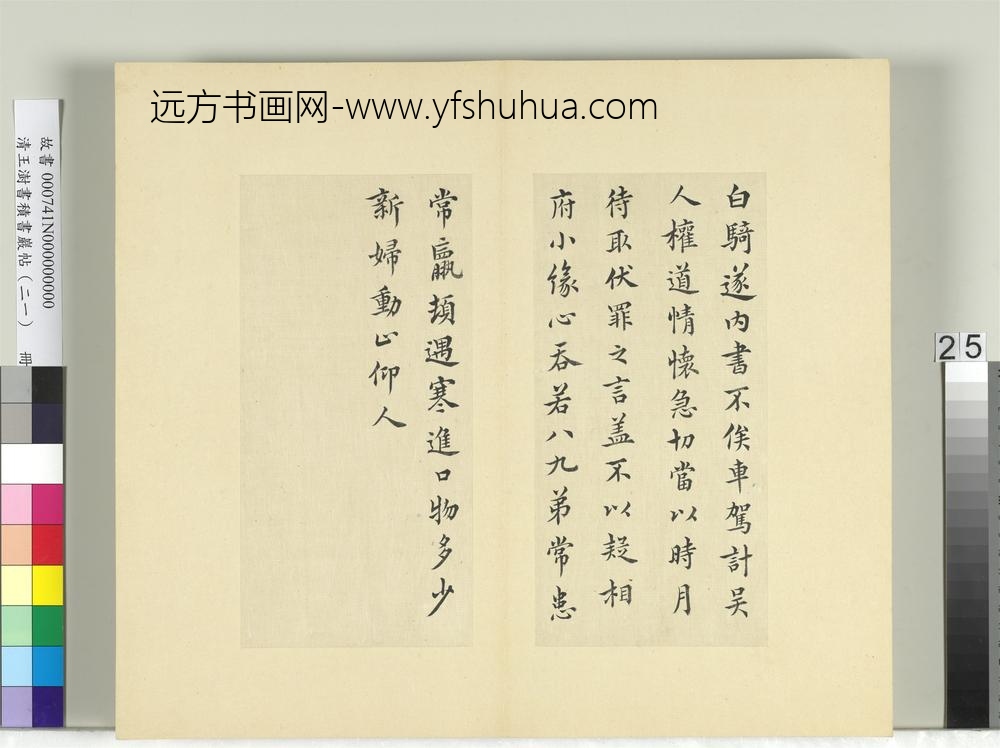 远方书画网-www.yfshuhua.com
白騎遂內書不俟車駕計吴
人權道情懷急切當以時月
待取伏罪之言盖不以疑相
府小緣心吞若八九弟常患
常羸頓遇寒進口物多少
新婦動止仰人
故書 000741N000000000
清王澍書積書巖帖（二一） 冊
25